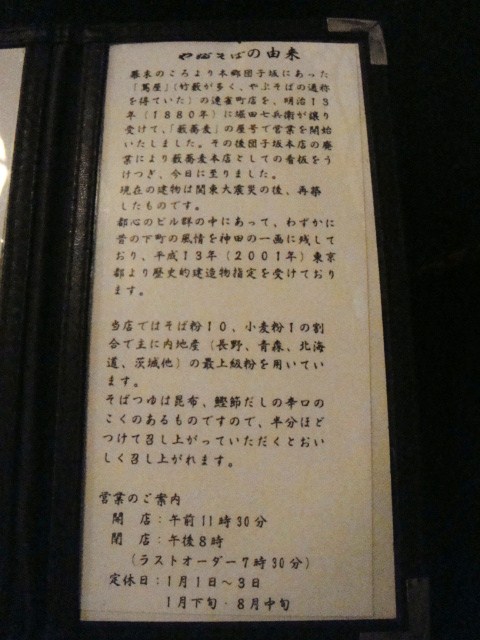 やぶそばの由来
幕末のころより本郷団子坂にあった
「蔦屋」(竹藪が多く、やぶそばの通称
を得ていた)の連雀町店を、明治13
年(1880年)に堀田七兵衛が譲り
受けて、「藪蕎麦」の屋号で営業を開始
いたしました。その後団子坂本店の廃
業により藪蕎麦本店としての看板をう
けつぎ、今日に至りました。
現在の建物は関東大震災の後、再築
したものです。
都心のビル群の中にあって、わずかに
昔の下町の風情を神田の一画に残して
おり、平成13年(2001年)東京
都より歴史的建造物指定を受けており
ます。
当店ではそば粉10、小麦粉1の割
合で主に内地産(長野、青森、北海
道、茨城他)の最上級粉を用いてい
ます。
そばつゆは昆布、鰹節だしの辛口の
こくのあるものですので、半分ほど
つけて召し上がっていただくとおい
しく召し上がれます。
営業のご案内
開 店:午前11時30分
閉 店:午後8時
(ラストオーダー7時30分)
定休日:1月1日~3日
1月下旬・8月中旬